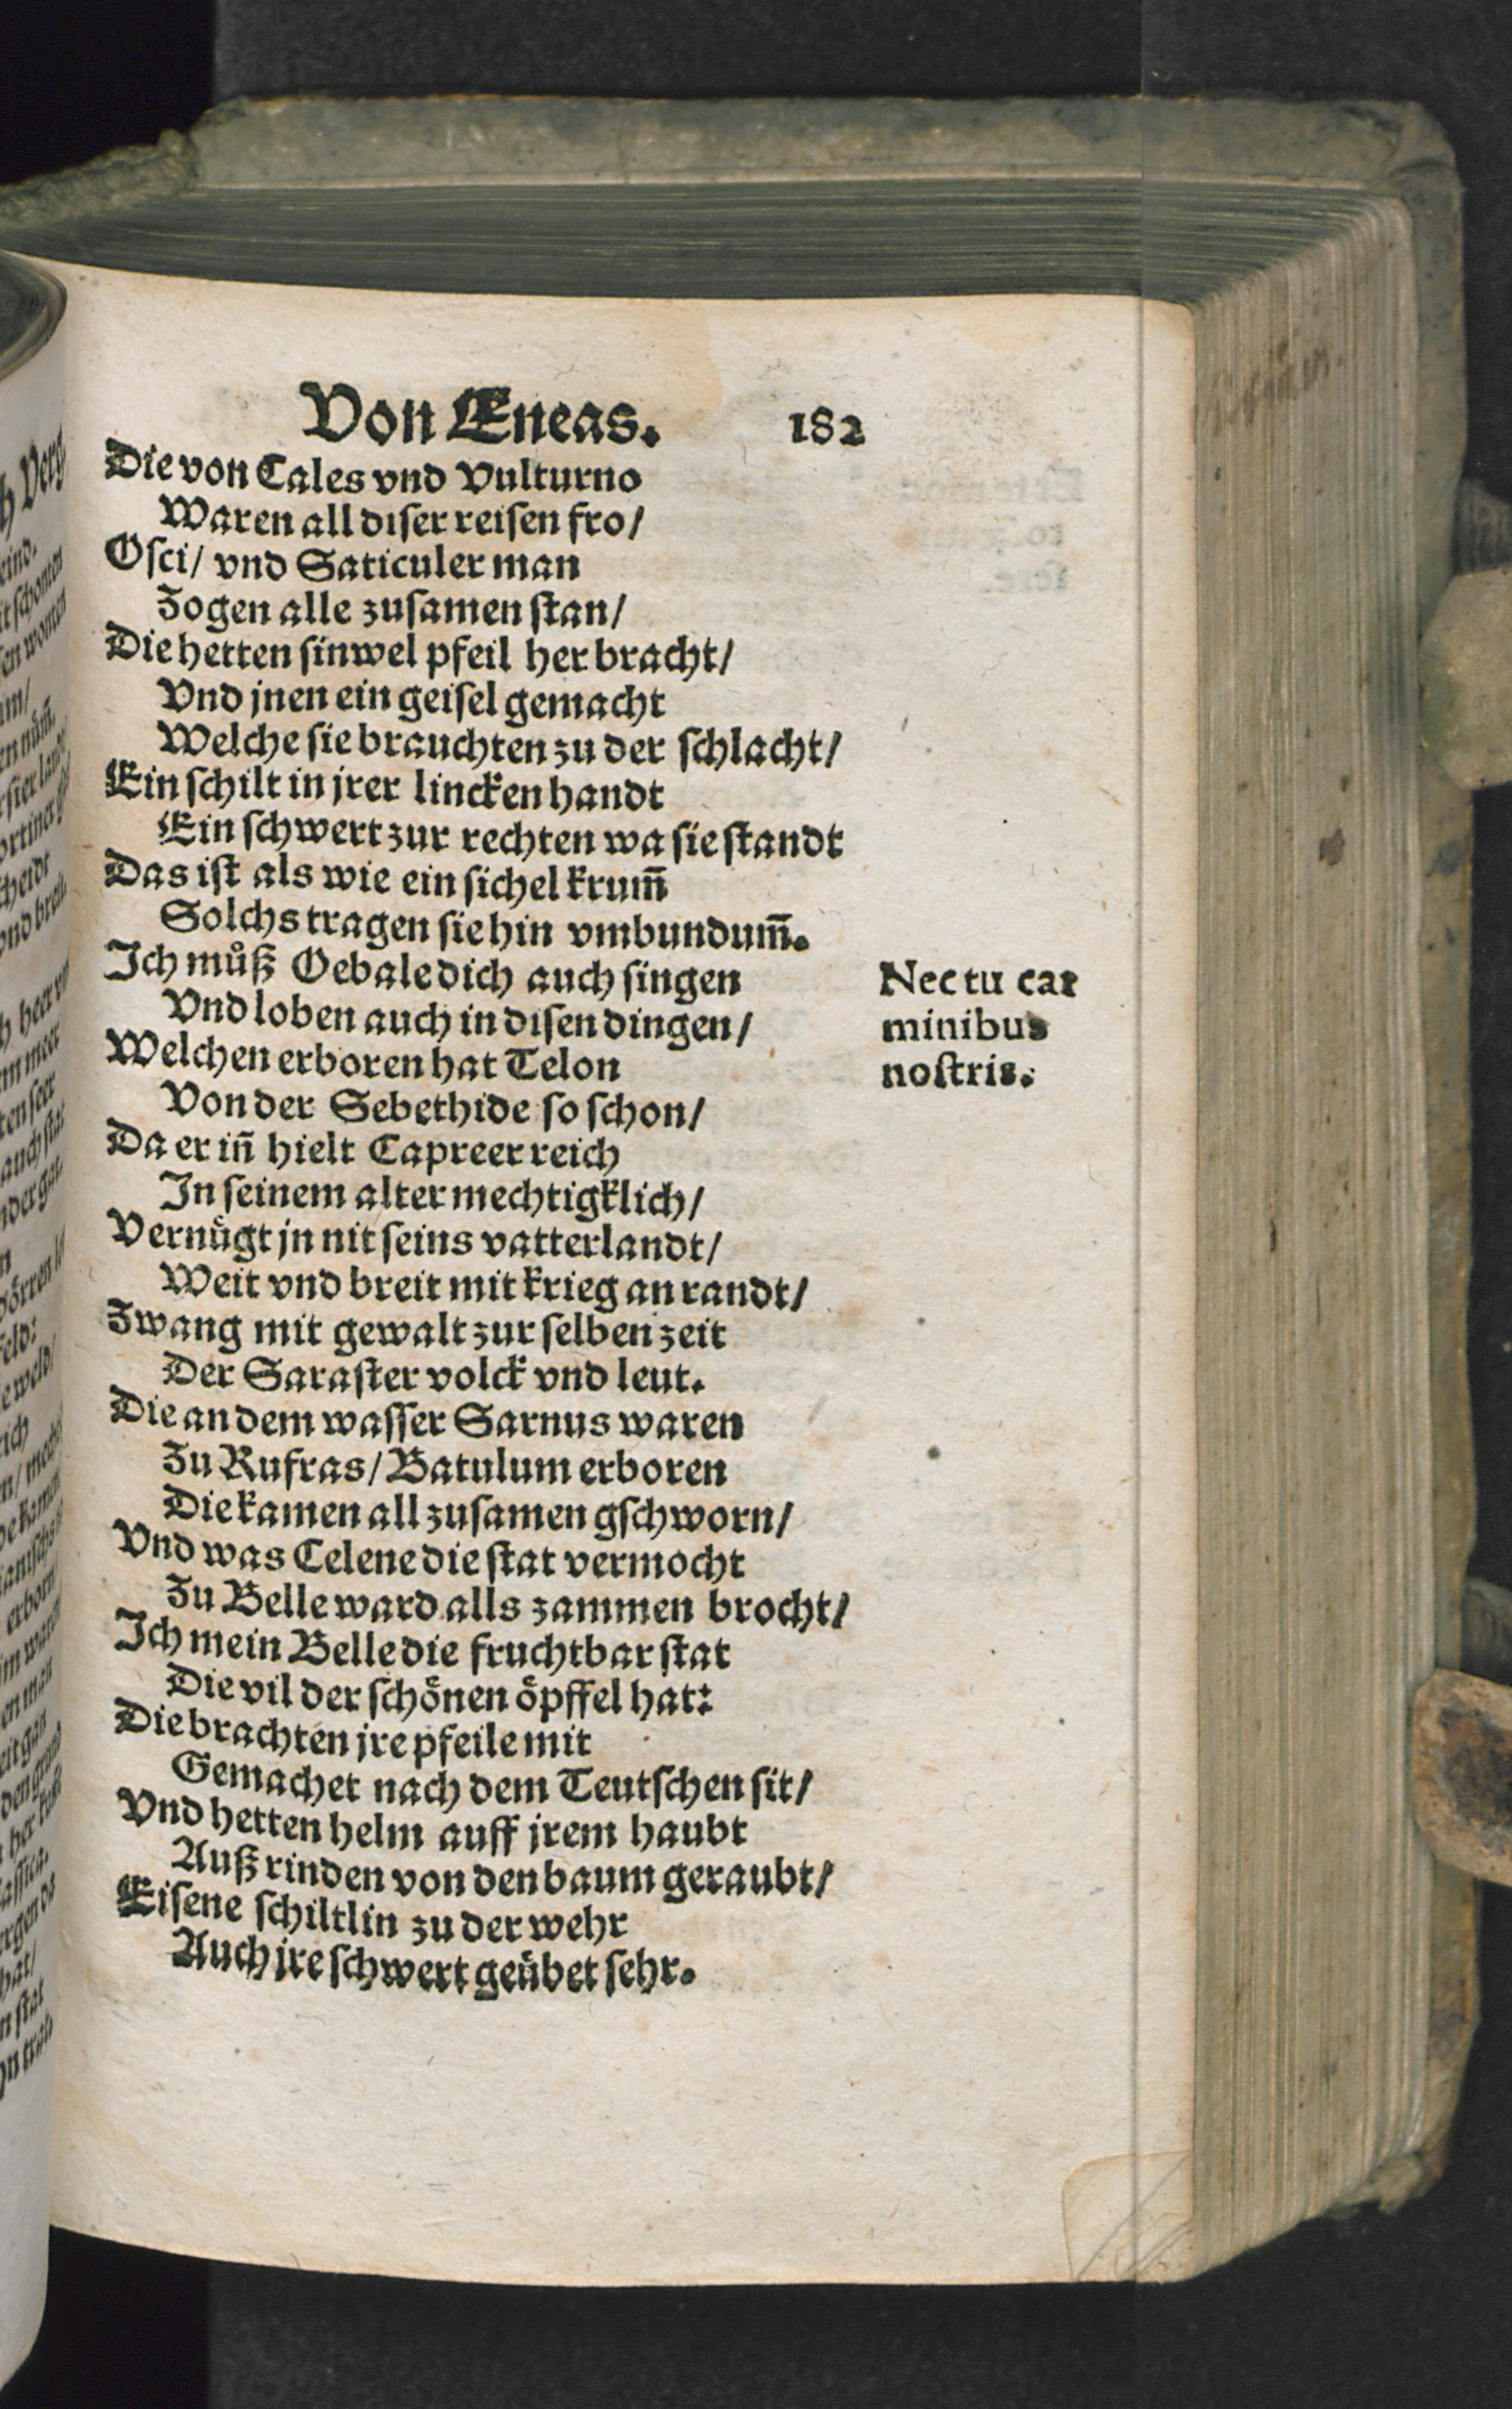 Von Æneas. 182
Die von Cales vnd Vulturno
Waren all diser reisen fro/
Osci/ vnd Saticuler man
Zogen alle zusamen stan/
Die hetten sinwel pfeil her bracht/
Vnd jnen ein geisel gemacht
Welche sie brauchten zu der schlacht/
Ein schilt in jrer lincken handt
Ein schwert zur rechten wa sie standt
Das ist als wie ein sichel krum̃
Solchs tragen sie hin vmbundum̃.
Ich můß Oebale dich auch singen
Vnd loben auch in disen dingen/
Welchen erboren hat Telon
Von der Sebethide so schon/
Da er iñ hielt Capreer reich
In seinem alter mechtigklich/
Vernůgt jn nit seins vatterlandt/
Weit vnd breit mit krieg an randt/
Zwang mit gewalt zur selben zeit
Der Saraster volck vnd leut.
Die an dem wasser Sarnus waren
Zu Rufras/ Batulum erboren
Die kamen all zusamen gschworn/
Vnd was Celene die stat vermocht
Zu Belle ward alls zammen brocht/
Ich mein Belle die fruchtbar stat
Die vil der schönen öpffel hat:
Die brachten jre pfeile mit
Gemachet nach dem Teutschen sit/
Vnd hetten helm auff jrem haubt
Auß rinden von den baum geraubt/
Eisene schiltlin zu der wehr
Auch jre schwert geübet sehr.
Nec tu car
minibus
nostris.